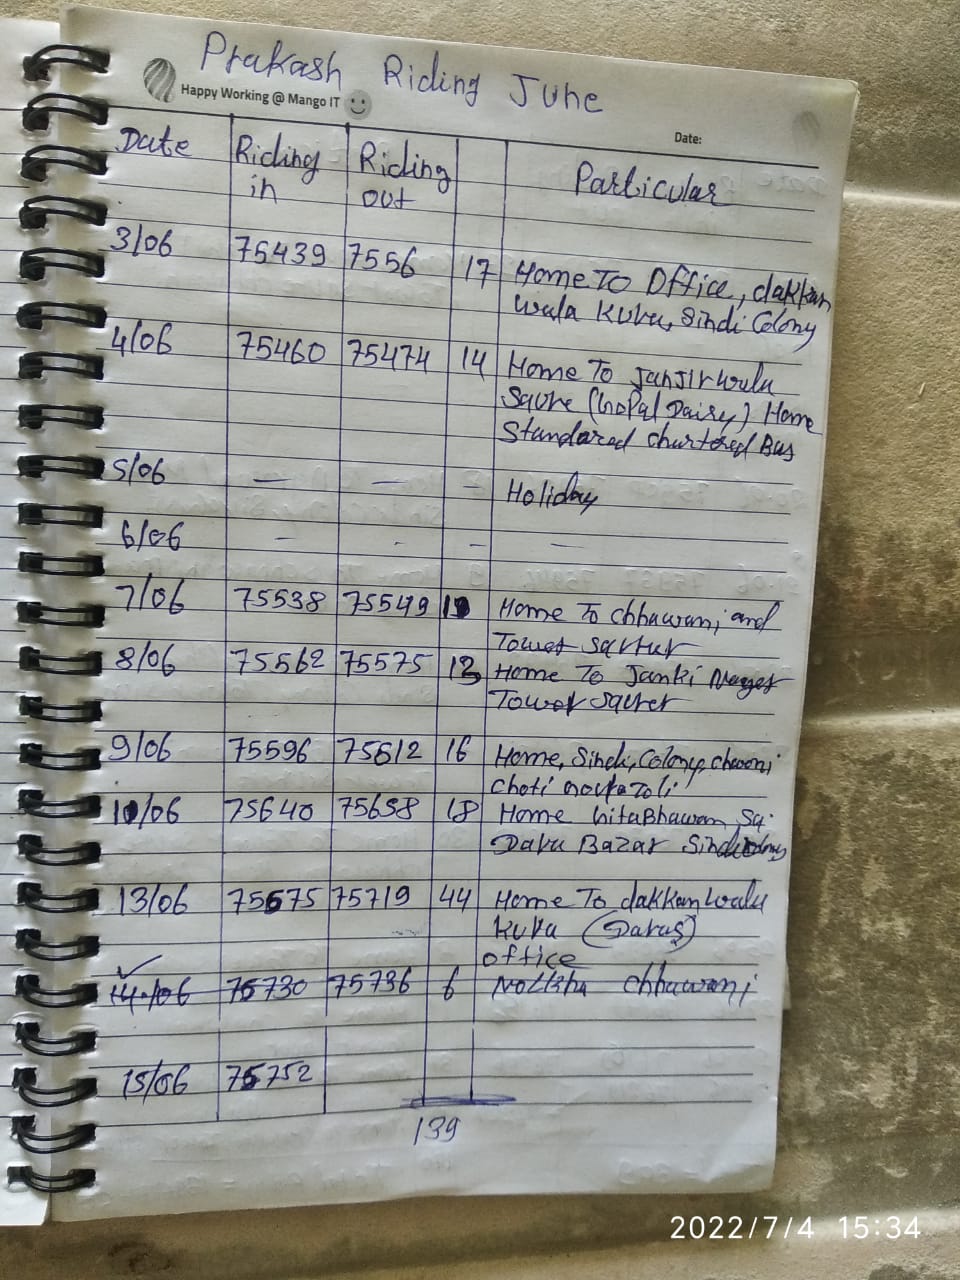 Prakash Riding June
Happy Working @ Mango IT
Date:
Date Riding in Riding out Particular
3/06 75439 7556 17 Home To Office, dakkan
wala Kuva, Sindi Colony
4/06 75460 75474 14 Home To Janjirwala
Saure (Gopal Dairy) Home
Standared chartered Bus
5/06 — — – Holiday
6/06 – - – —
7/06 75538 75549 Home To Chhawani and
Tower
8/06 75562 75575 13 Home To Janki Nager
Tower
9/06 75596 75612 16 Home, Sindi, Colony,
choti
10/06 75640 75658 18 Home GitaBhawan Sq.
Dava Bazar
13/06 75675 75719 44 Home To dakkanwala
Kuva
office
14/06 75730 75736 6 Chhawani
15/06 75752
139
2022/7/4 15:34